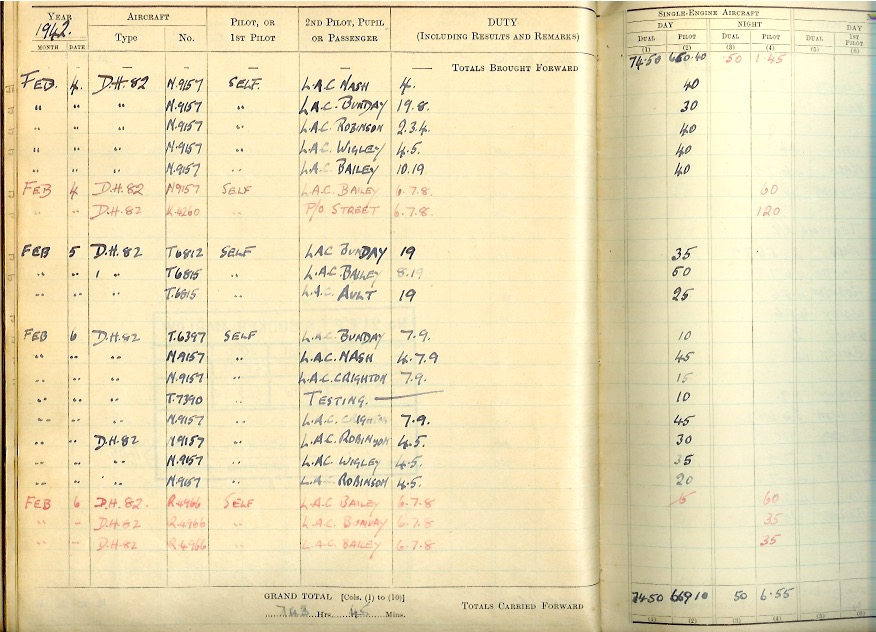 YEAR AIRCRAFT PILOT, OR 2ND PILOT, PUPIL DUTY SINGLE-ENGINE AIRCRAFT
1942. Type No. 1ST PILOT OR PASSENGER (INCLUDING RESULTS AND REMARKS) DAY NIGHT DAY
MONTH DATE DUAL PILOT DUAL PILOT DUAL 1ST PILOT
(1) (2) (3) (4) (5) (6)
— — — — — TOTALS BROUGHT FORWARD 74.50 660.40 .50 1.45
FEB. 4. D.H.82 N.9157 SELF. L.A.C. NASH 4. 40
" " " N.9157 " L.A.C. BUNDAY 19.8. 30
" " " N.9157 " L.A.C. ROBINSON 2.3.4. 40
" " " N.9157 " L.A.C. WIGLEY 4.5. 40
" " " N.9157 " L.A.C. BAILEY 10.19 40
FEB 4 D.H.82 N9157 SELF L.A.C. BAILEY 6.7.8. 60
" " D.H.82 K.4260 " P/O STREET 6.7.8. 120
FEB 5 D.H.82 T6812 SELF LAC BUNDAY 19 35
" " " T6815 " L.A.C. BAILEY 8.19
" " " T.6815 " L.A.C. AULT 19 25
FEB 6 D.H.82 T.6397 SELF L.A.C. BUNDAY 7.9. 10
" " " N9157 " L.A.C. NASH 4.7.9 45
" " " N.9157 " L.A.C. CRIGHTON 7.9. 15
" " " T.7390 " TESTING. — 10
" " " N9157 " L.A.C. CRIGHTON 7.9. 45
" " D.H.82 N9157 " L.A.C. ROBINSON 4.5. 30
" " " N.9157 " L.AC. WIGLEY 4.5. 35
" " " N9157 " L.A.C. ROBINSON 4.5. 20
FEB 6 D.H.82. R.4966 SELF L.A.C BAILEY 6.7.8 60
" " D.H.82 R.4966 " L.A.C BUNDAY 6.7.8 35
" " D.H.82 R.4966 " L.A.C. BAILEY 6.7.8 35
GRAND TOTAL [Cols. (1) to (10)]
Hrs. 45 Mins. TOTALS CARRIED FORWARD 74.50 669 10 50 6.55
(1) (2) (3) (4) (5) (6)